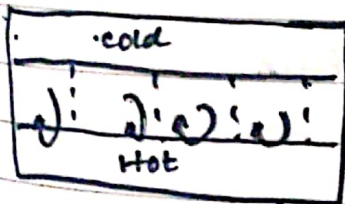 cold
Hot